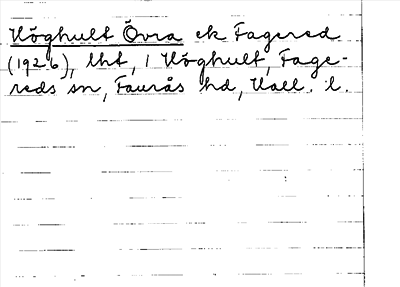 Höghult Övra ek Fagered
(1926), lht, 1 Höghult, Fage-
reds sn, Faurås hd, Hall. l.